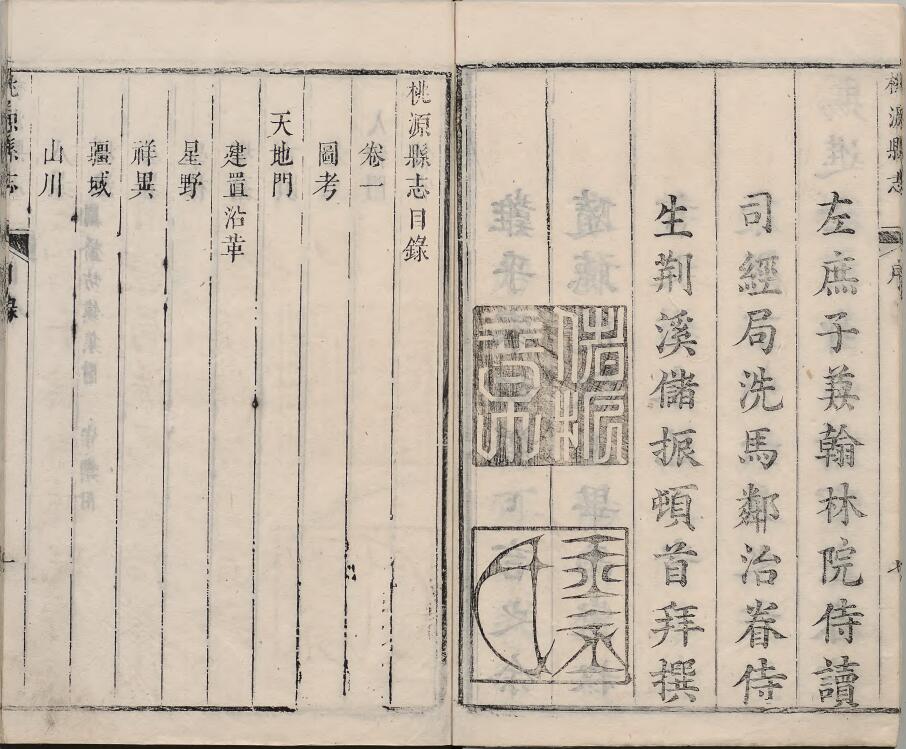 桃源縣志
序
七
左庶子兼翰林院侍讀
司經局洗馬鄰治眷侍
生荆溪儲振頓首拜撰
桃源縣志目錄
卷一
圖考
天地門
建置沿革
星野
祥異
疆域
山川
桃源縣志
目錄
一